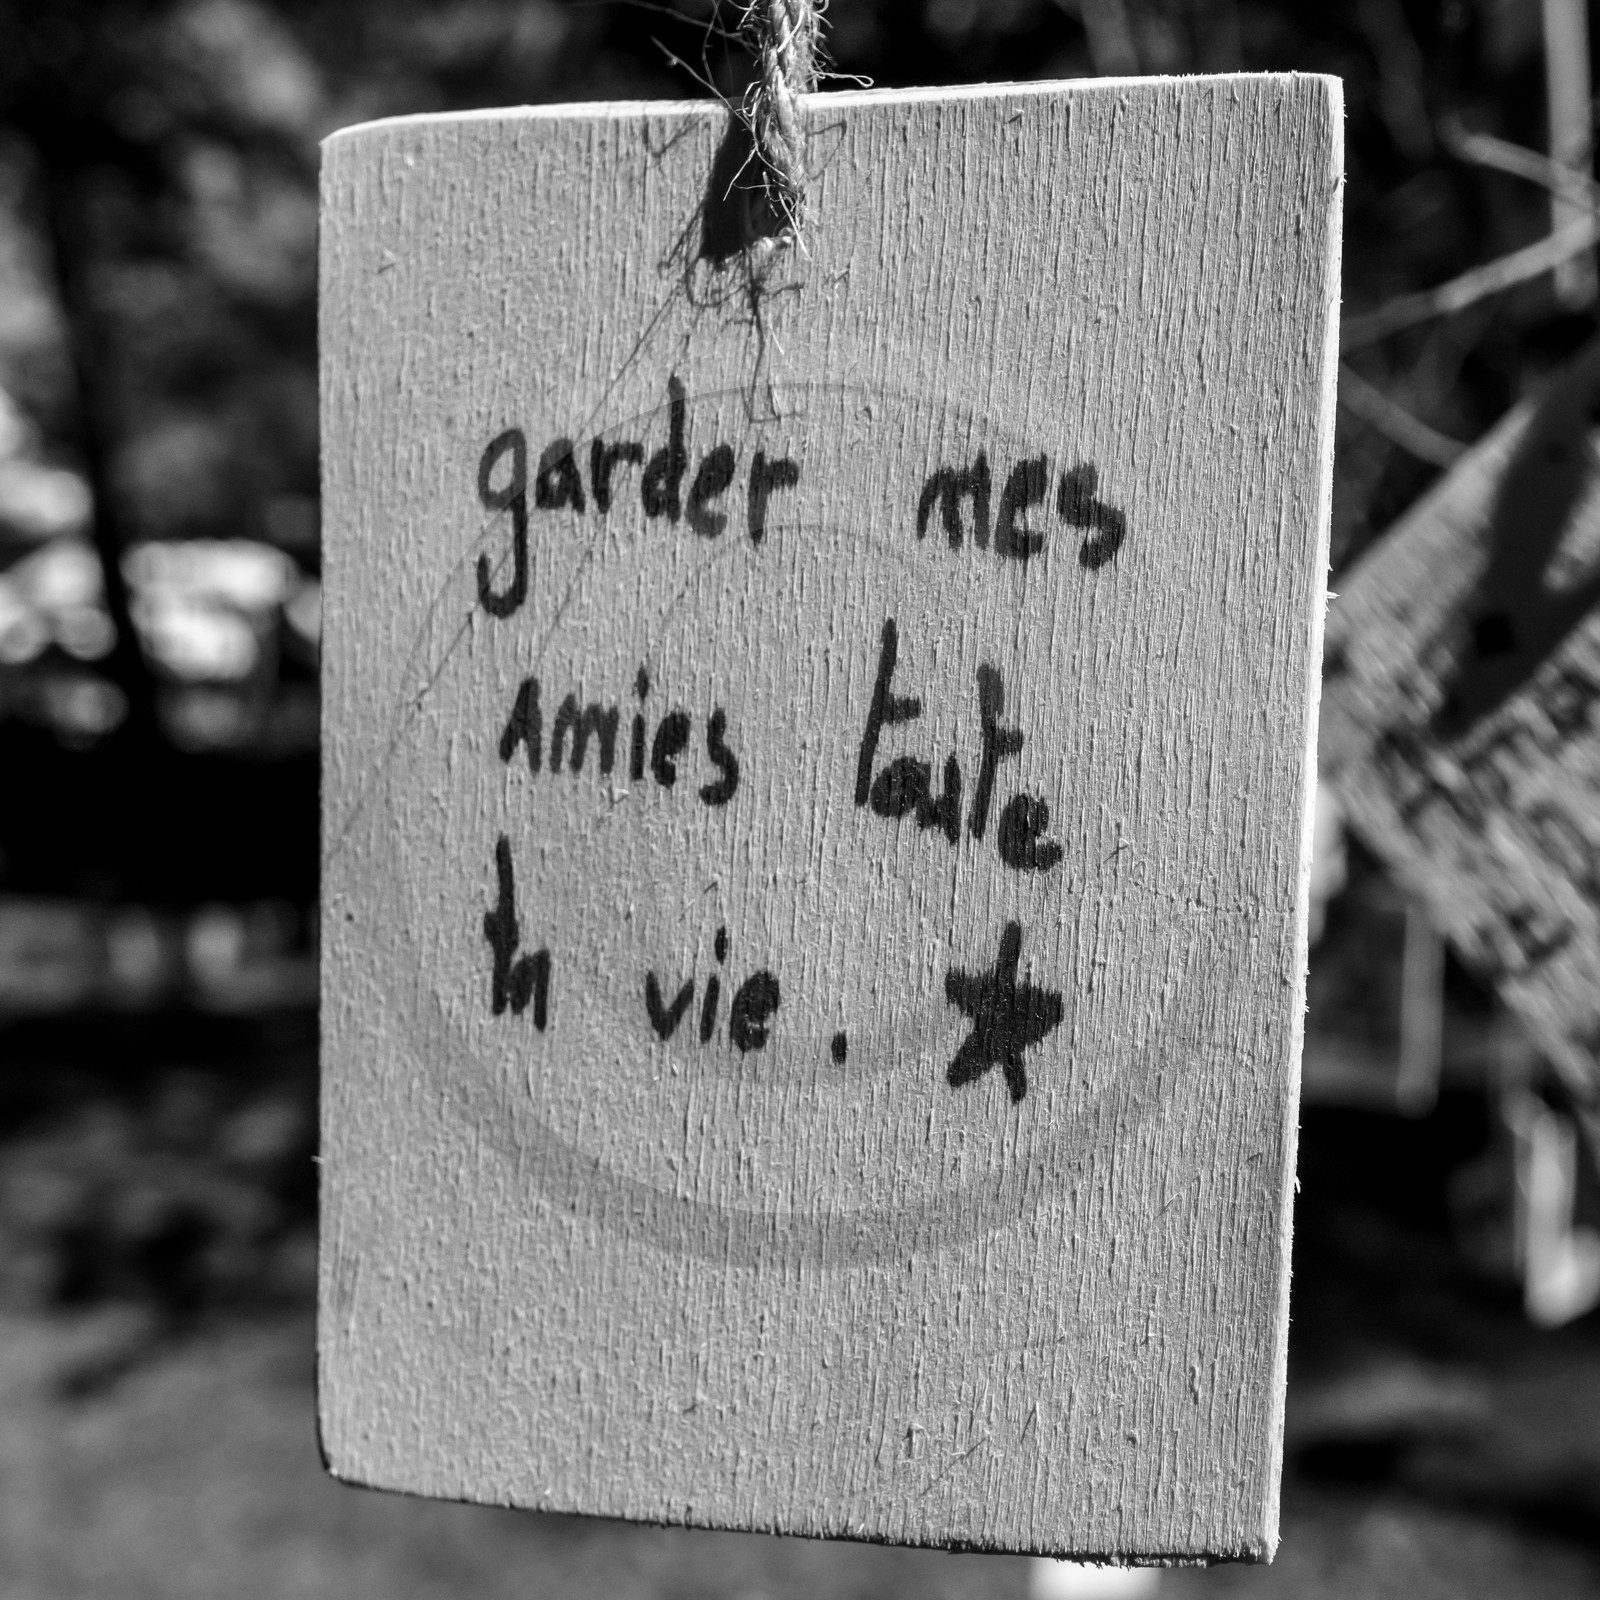 garder mes
amies toute
ta vie. ★